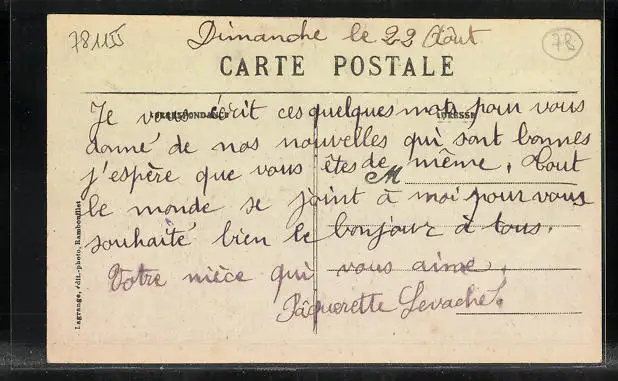 78115
Dimanche le 22 Août
78
CARTE POSTALE
CORRESPONDANCE
ADRESSE
Je vous écrit ces quelques mots pour vous
donné de nos nouvelles qui sont bonnes
j'espère que vous êtes de même. Tout
M
le monde se joint à moi pour vous
souhaité bien le bonjour à tous.
Votre nièce qui vous aime.
Pâquerette Levaché.
Lagrange, édit.-photo, Rambouillet